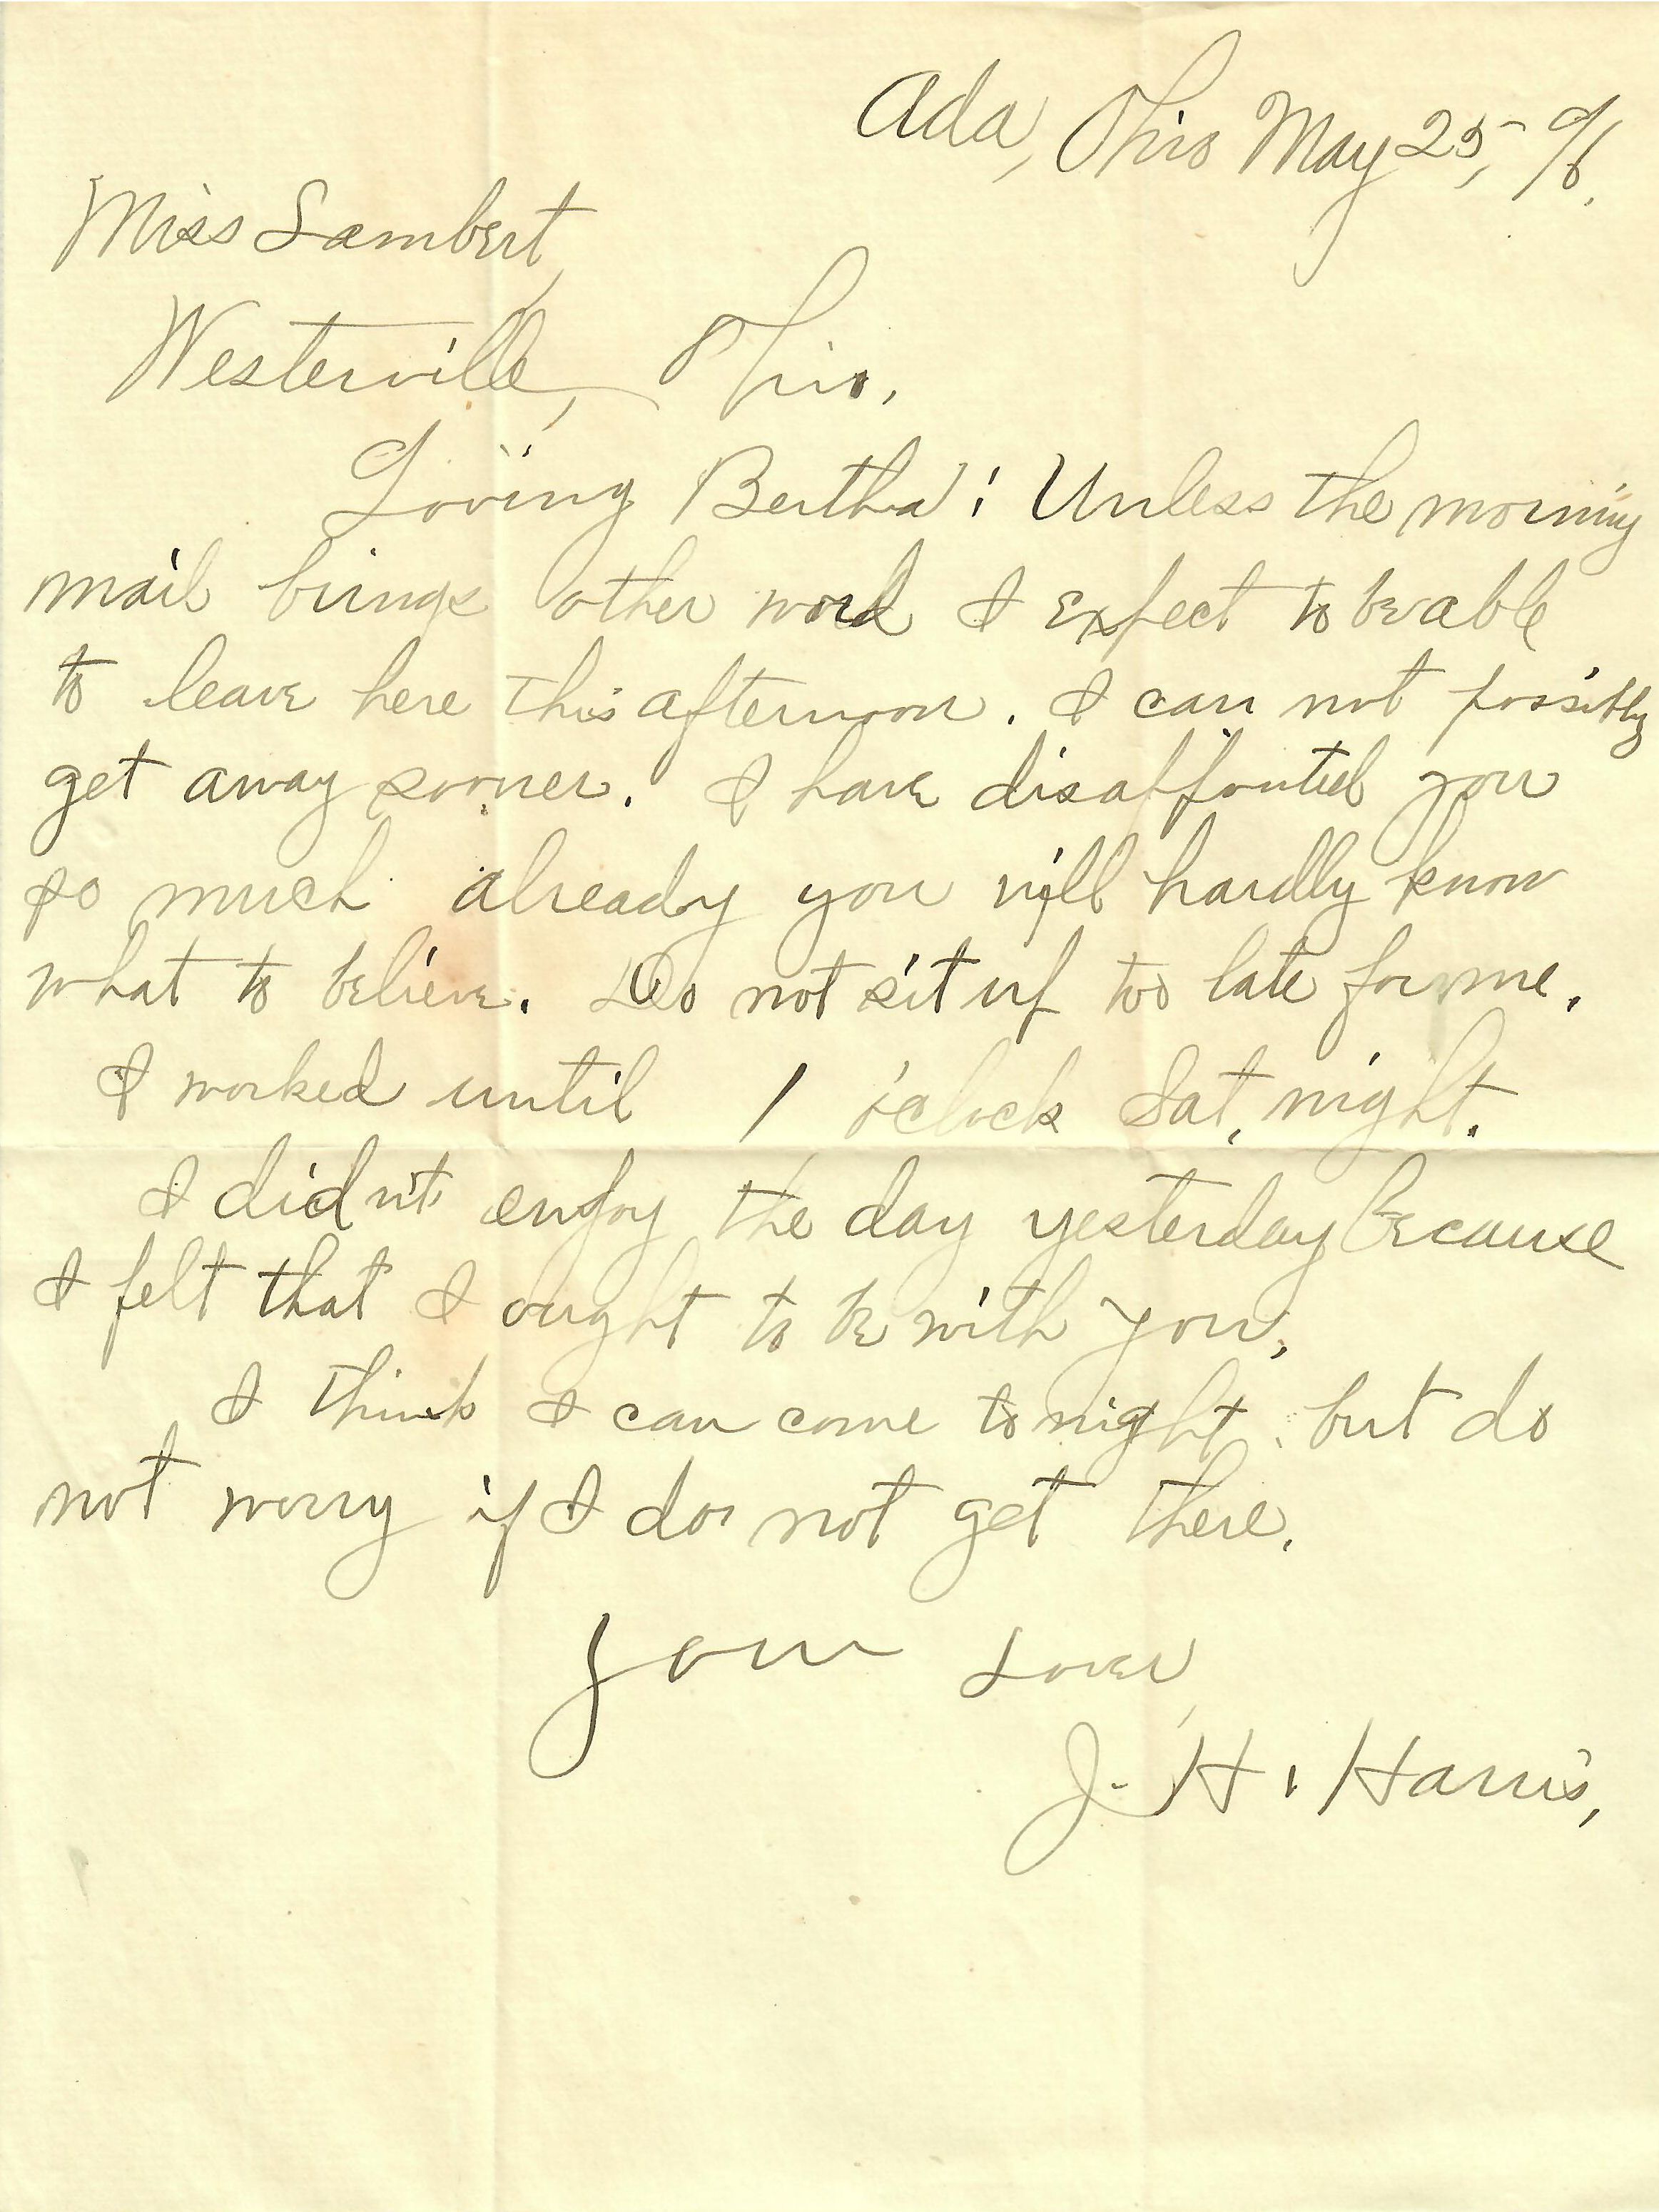 Ada, Ohio May 25, 96.
Miss Lambert,
Westerville, Ohio.
Loving Bertha: Unless the morning
mail brings other word I expect to be able
to leave here this afternoon. I can not possibly
get away sooner. I have disappointed you
so much already you will hardly know
what to believe. Do not sit up too late for me.
I worked until 1 o'clock Sat. night.
I didn't enjoy the day yesterday because
I felt that I ought to be with you.
I think I can come to night, but do
not worry if I do not get there.
Your Lover,
J. H. Harris,